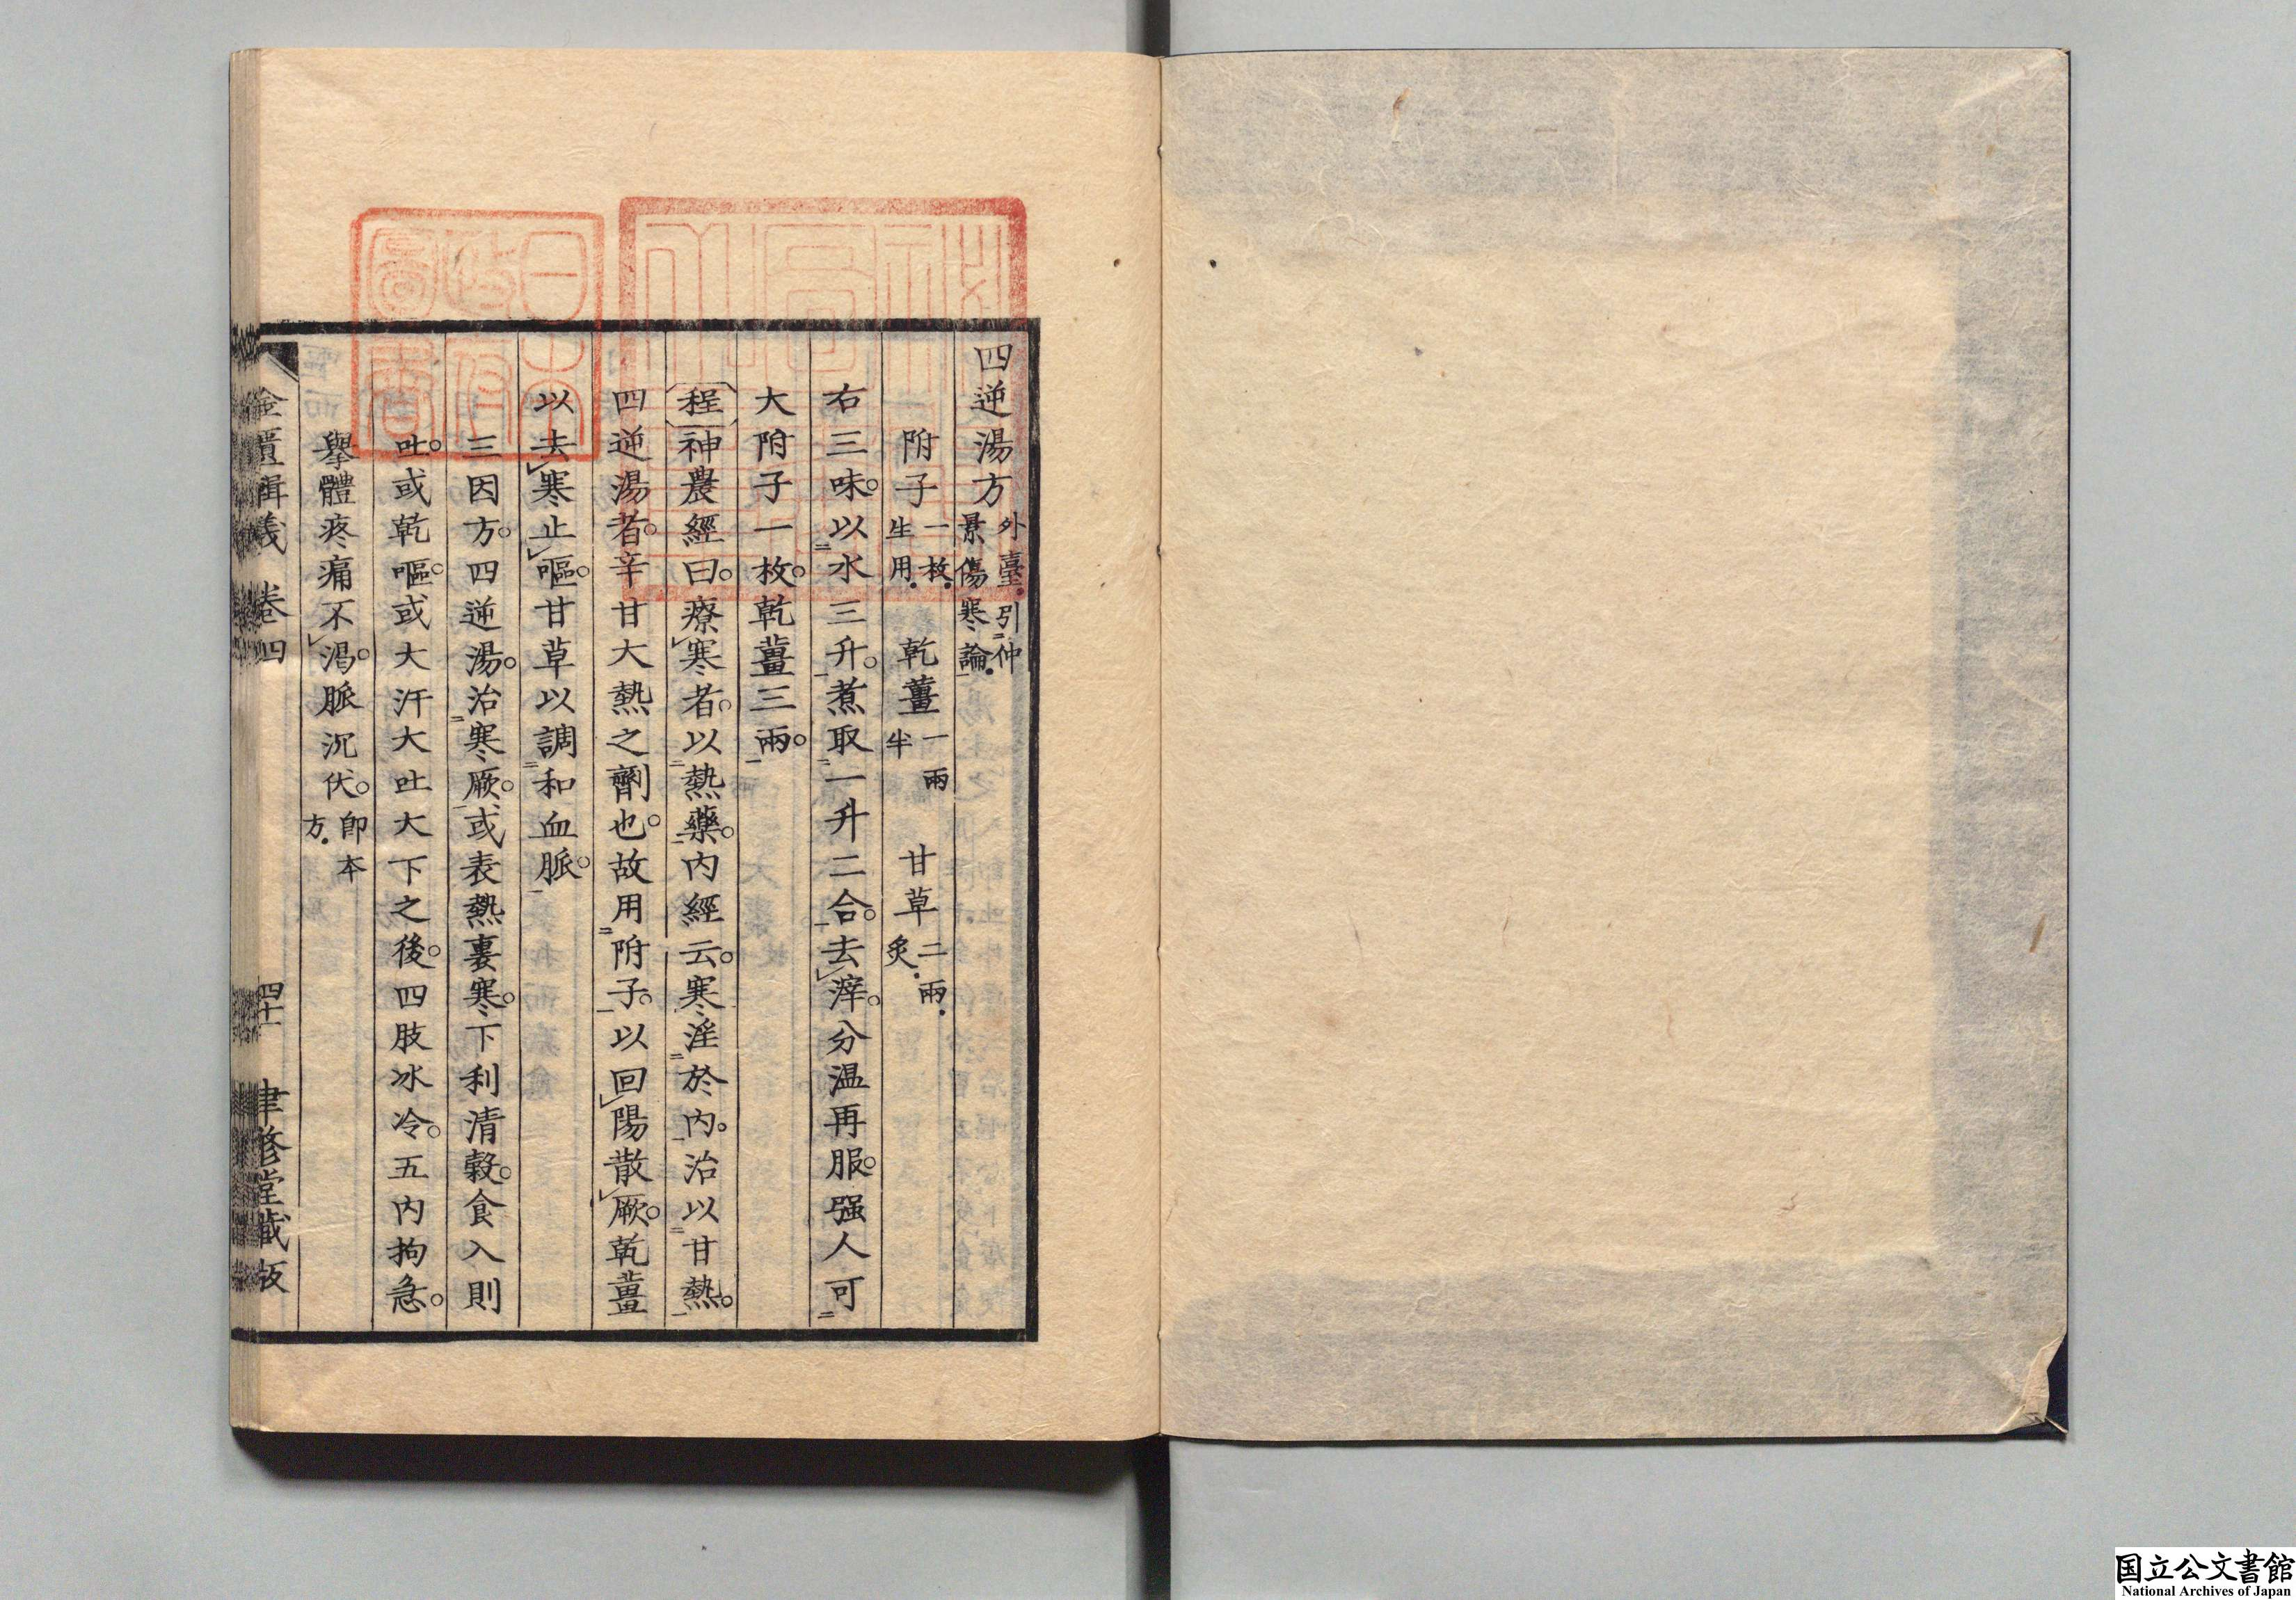 四逆湯方 外臺引仲景傷寒論
附子 一枚生用 乾薑 一兩半 甘草 二兩炙
右三味。以水三升。煮取一升二合。去滓。分温再服。强人可
大附子一枚。乾薑三兩。
程 神農經曰。療寒者。以熱藥。内經云。寒淫於内。治以甘熱。
四逆湯者。辛甘大熱之劑也。故用附子。以回陽散厥。乾薑
以去寒止嘔。甘草以調和血脈。
三因方。四逆湯。治寒厥。或表熱裏寒。下利清穀。食入則
吐。或乾嘔。或大汗大吐大下之後。四肢冰冷。五内拘急。
擧體疼痛不渴。脈沉伏。 卽本方
金匱輯義 卷四 四十一 聿修堂藏版
日本政府圖書
国立公文書館
National Archives of Japan